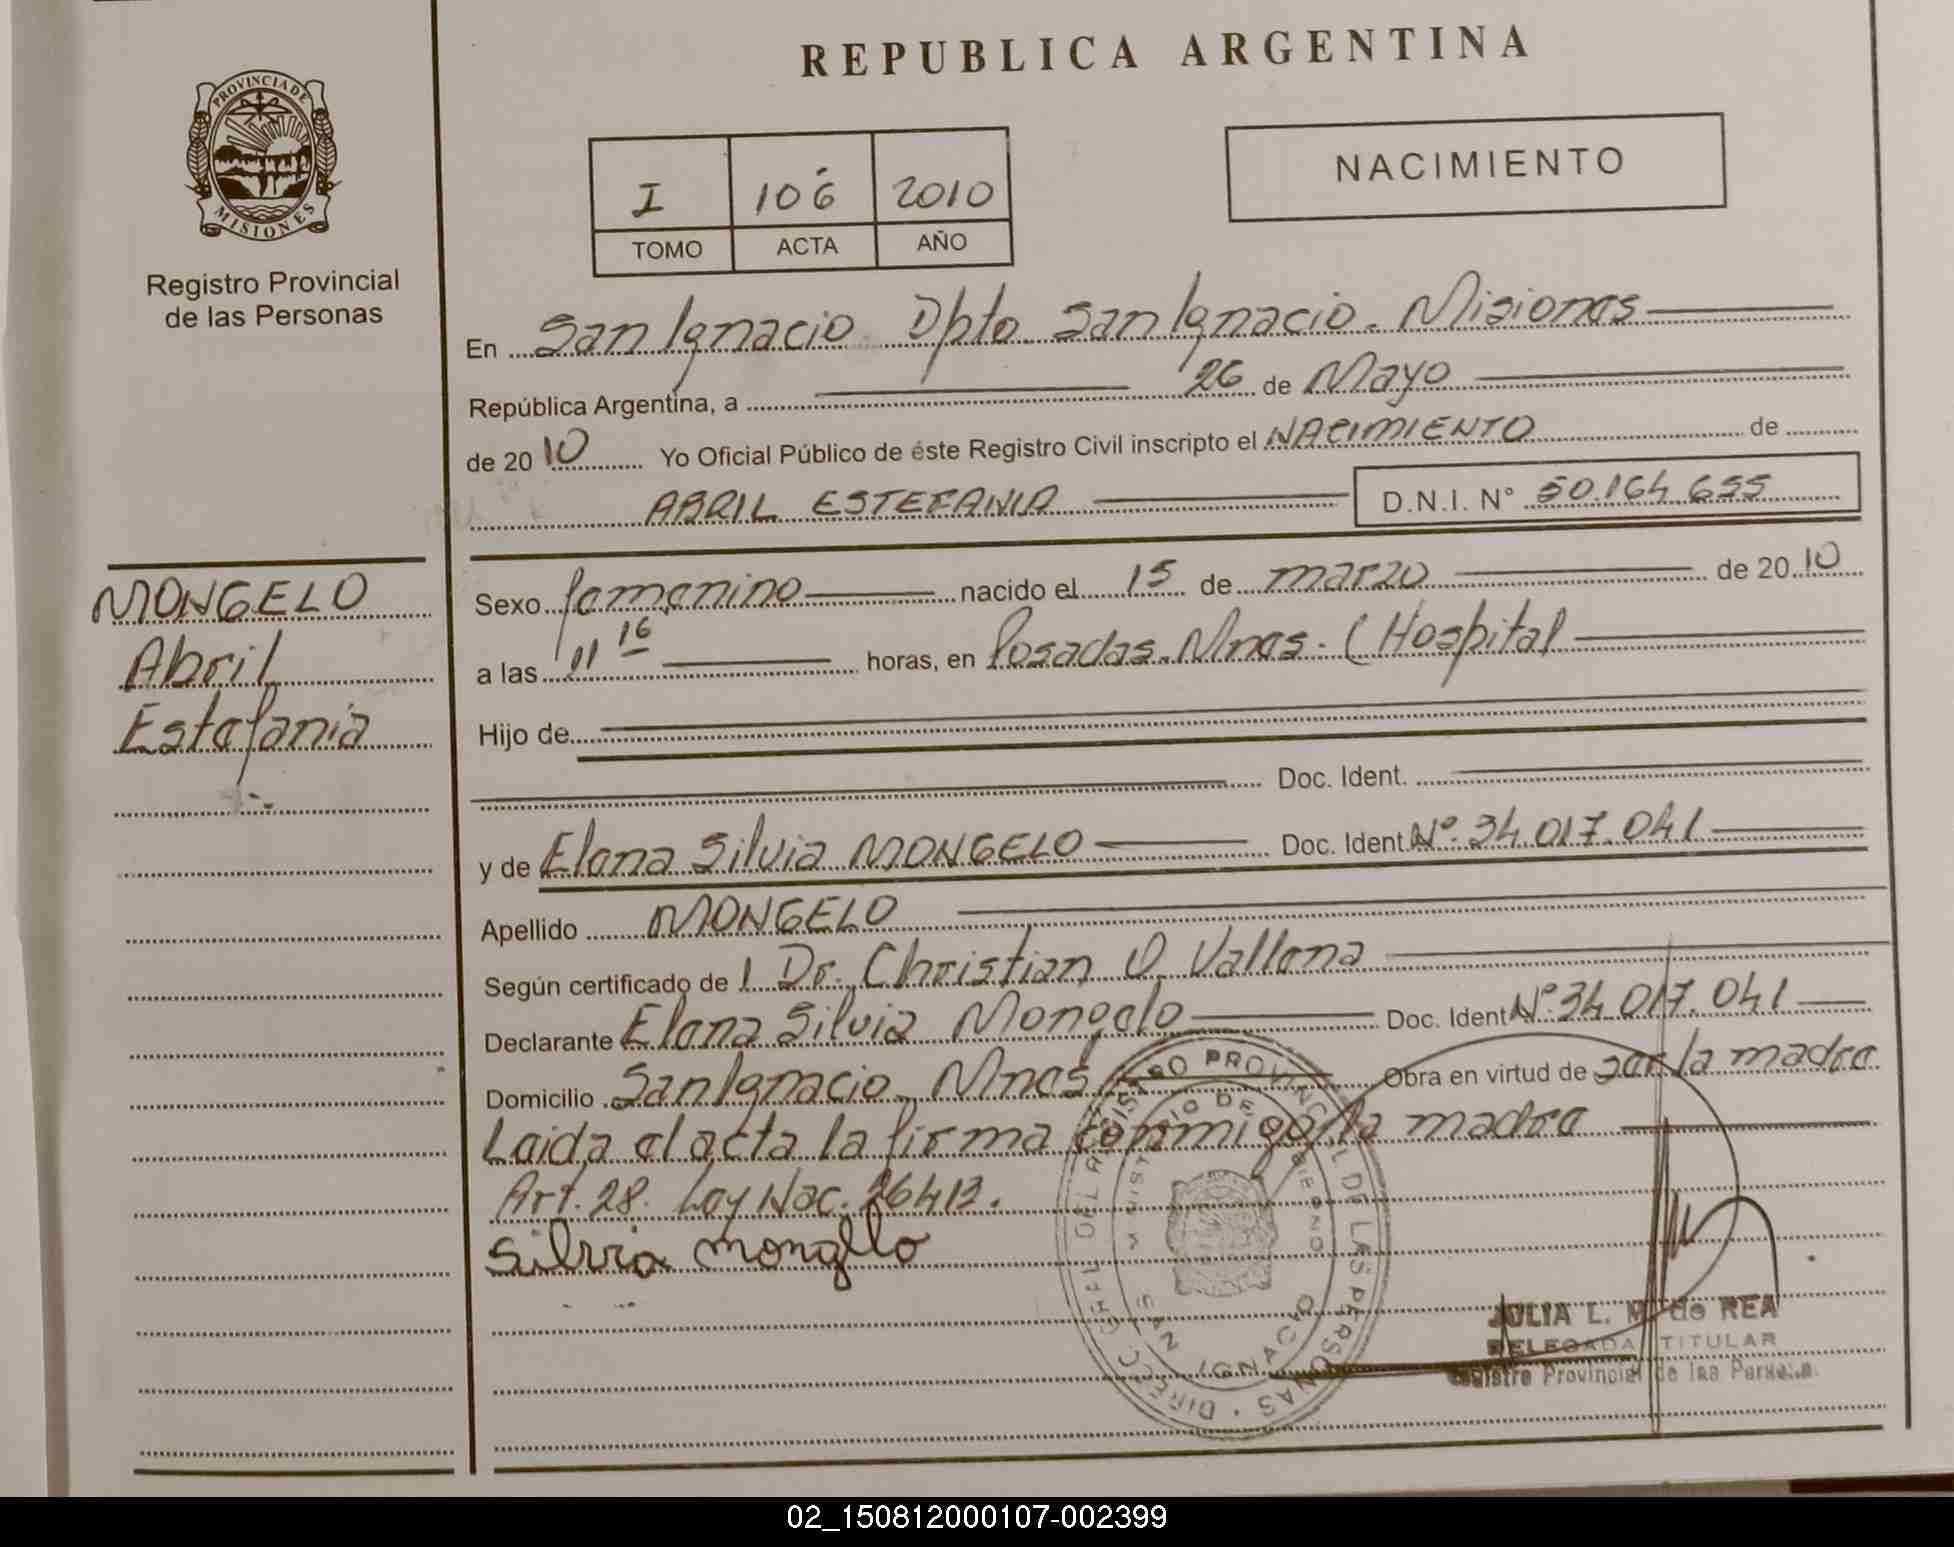 REPUBLICA ARGENTINA
PROVINCIA DE
MISIONES
Registro Provincial
de las Personas
I 106 2010
TOMO ACTA AÑO
NACIMIENTO
En San Ignacio Dpto San Ignacio. Misiones
República Argentina, a 26 de Mayo
de 2010 Yo Oficial Público de éste Registro Civil inscripto el NACIMIENTO de
ABRIL ESTEFANIA D.N.I. N° 50.164.655
MONGELO
Abril
Estefania
Sexo femenino nacido el 15 de marzo de 2010
a las 11 16 horas, en Posadas. Mnes. (Hospital
Hijo de
Doc. Ident.
y de Elena Silvia MONGELO Doc. Ident. N°. 34.017.041
Apellido MONGELO
Según certificado de Dr. Christian O. Vallena
Declarante Elena Silvia Mongelo Doc. Ident N°. 34.017.041
Domicilio San Ignacio. Mnes Obra en virtud de ser la madre
Leida el acta la firma conmigo, la madre
Art. 28. Ley Nac. 26413.
Silvia mongelo
DIRECC. GRAL. DEL REGISTRO PROVINCIAL DE LAS PERSONAS
MINISTERIO DE GOBIERNO
SAN IGNACIO
JULIA L. M. de REA
DELEGADA TITULAR
Registro Provincial de las Personas
02_150812000107-002399